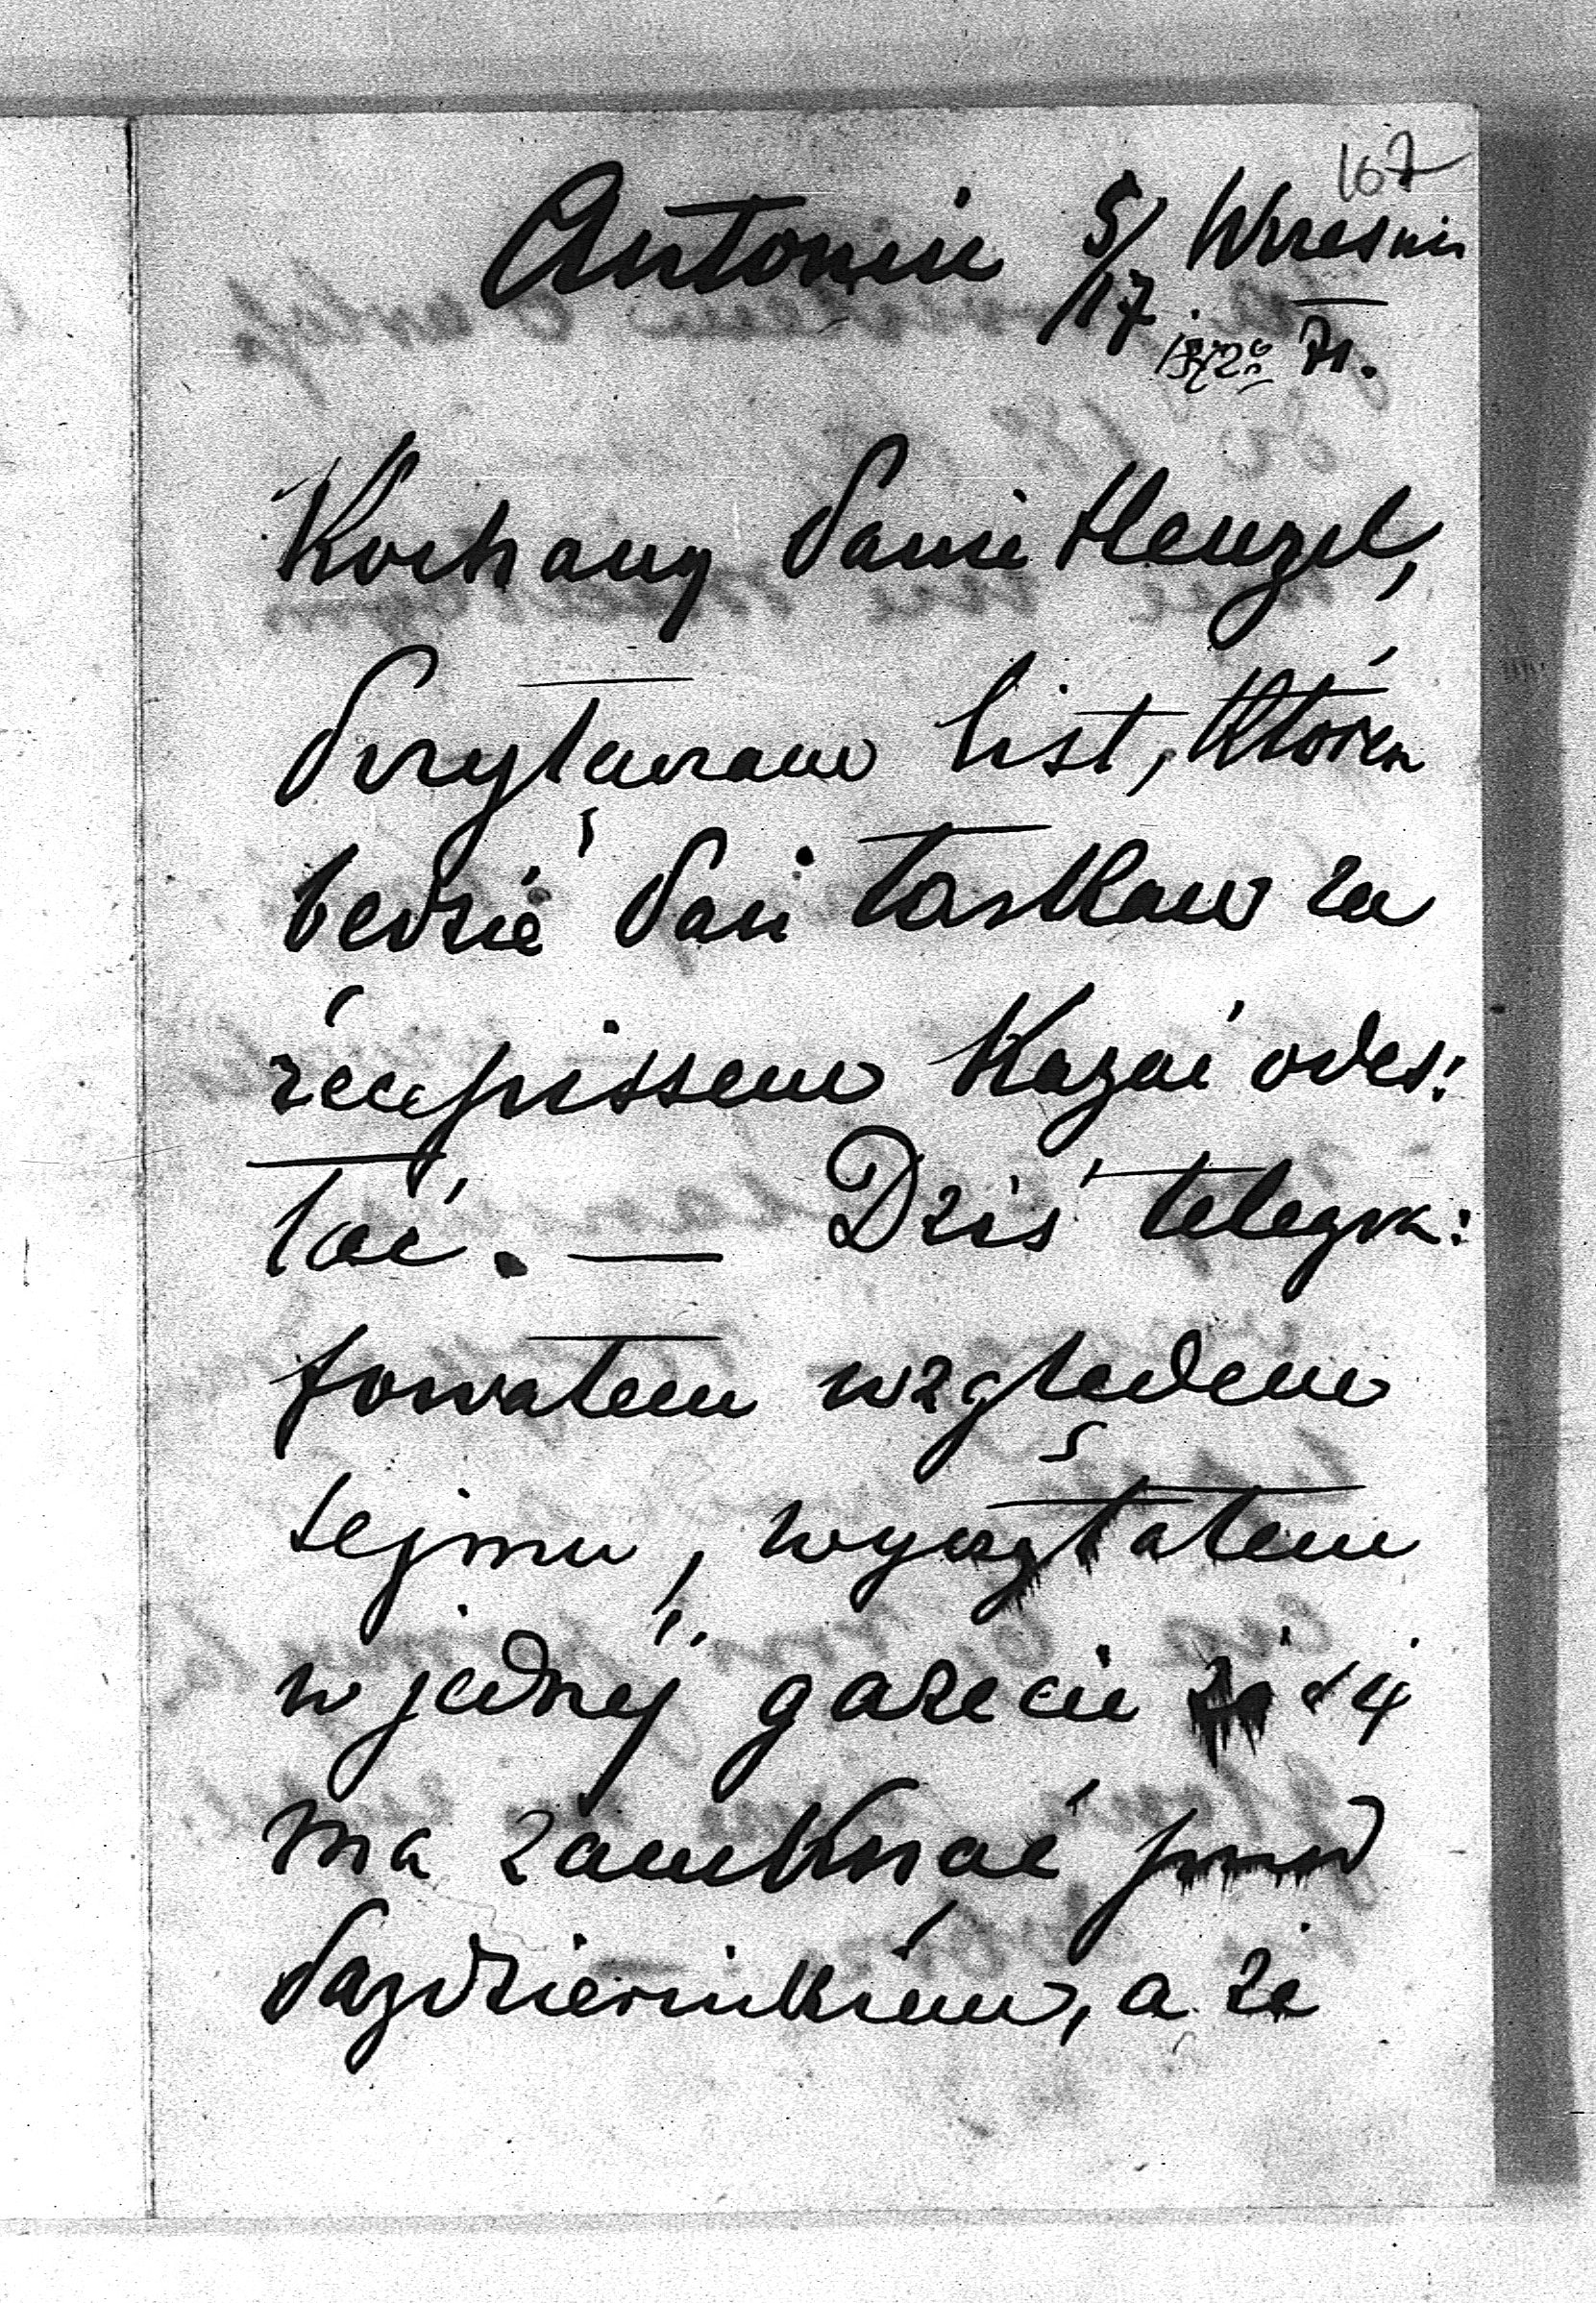 167
Antonin 5/17. Wrzesnia
71.
Kochany Panie Henzel,
Przytaczam list, który
będzie Pan łaskaw za
récepissem kazać odes:
łać. — Dziś telegra:
fowałem względem
sejmu, wyczytałem
w jednéj gazecie że się
ma zamknąć przed
Paździérnikiem, a że